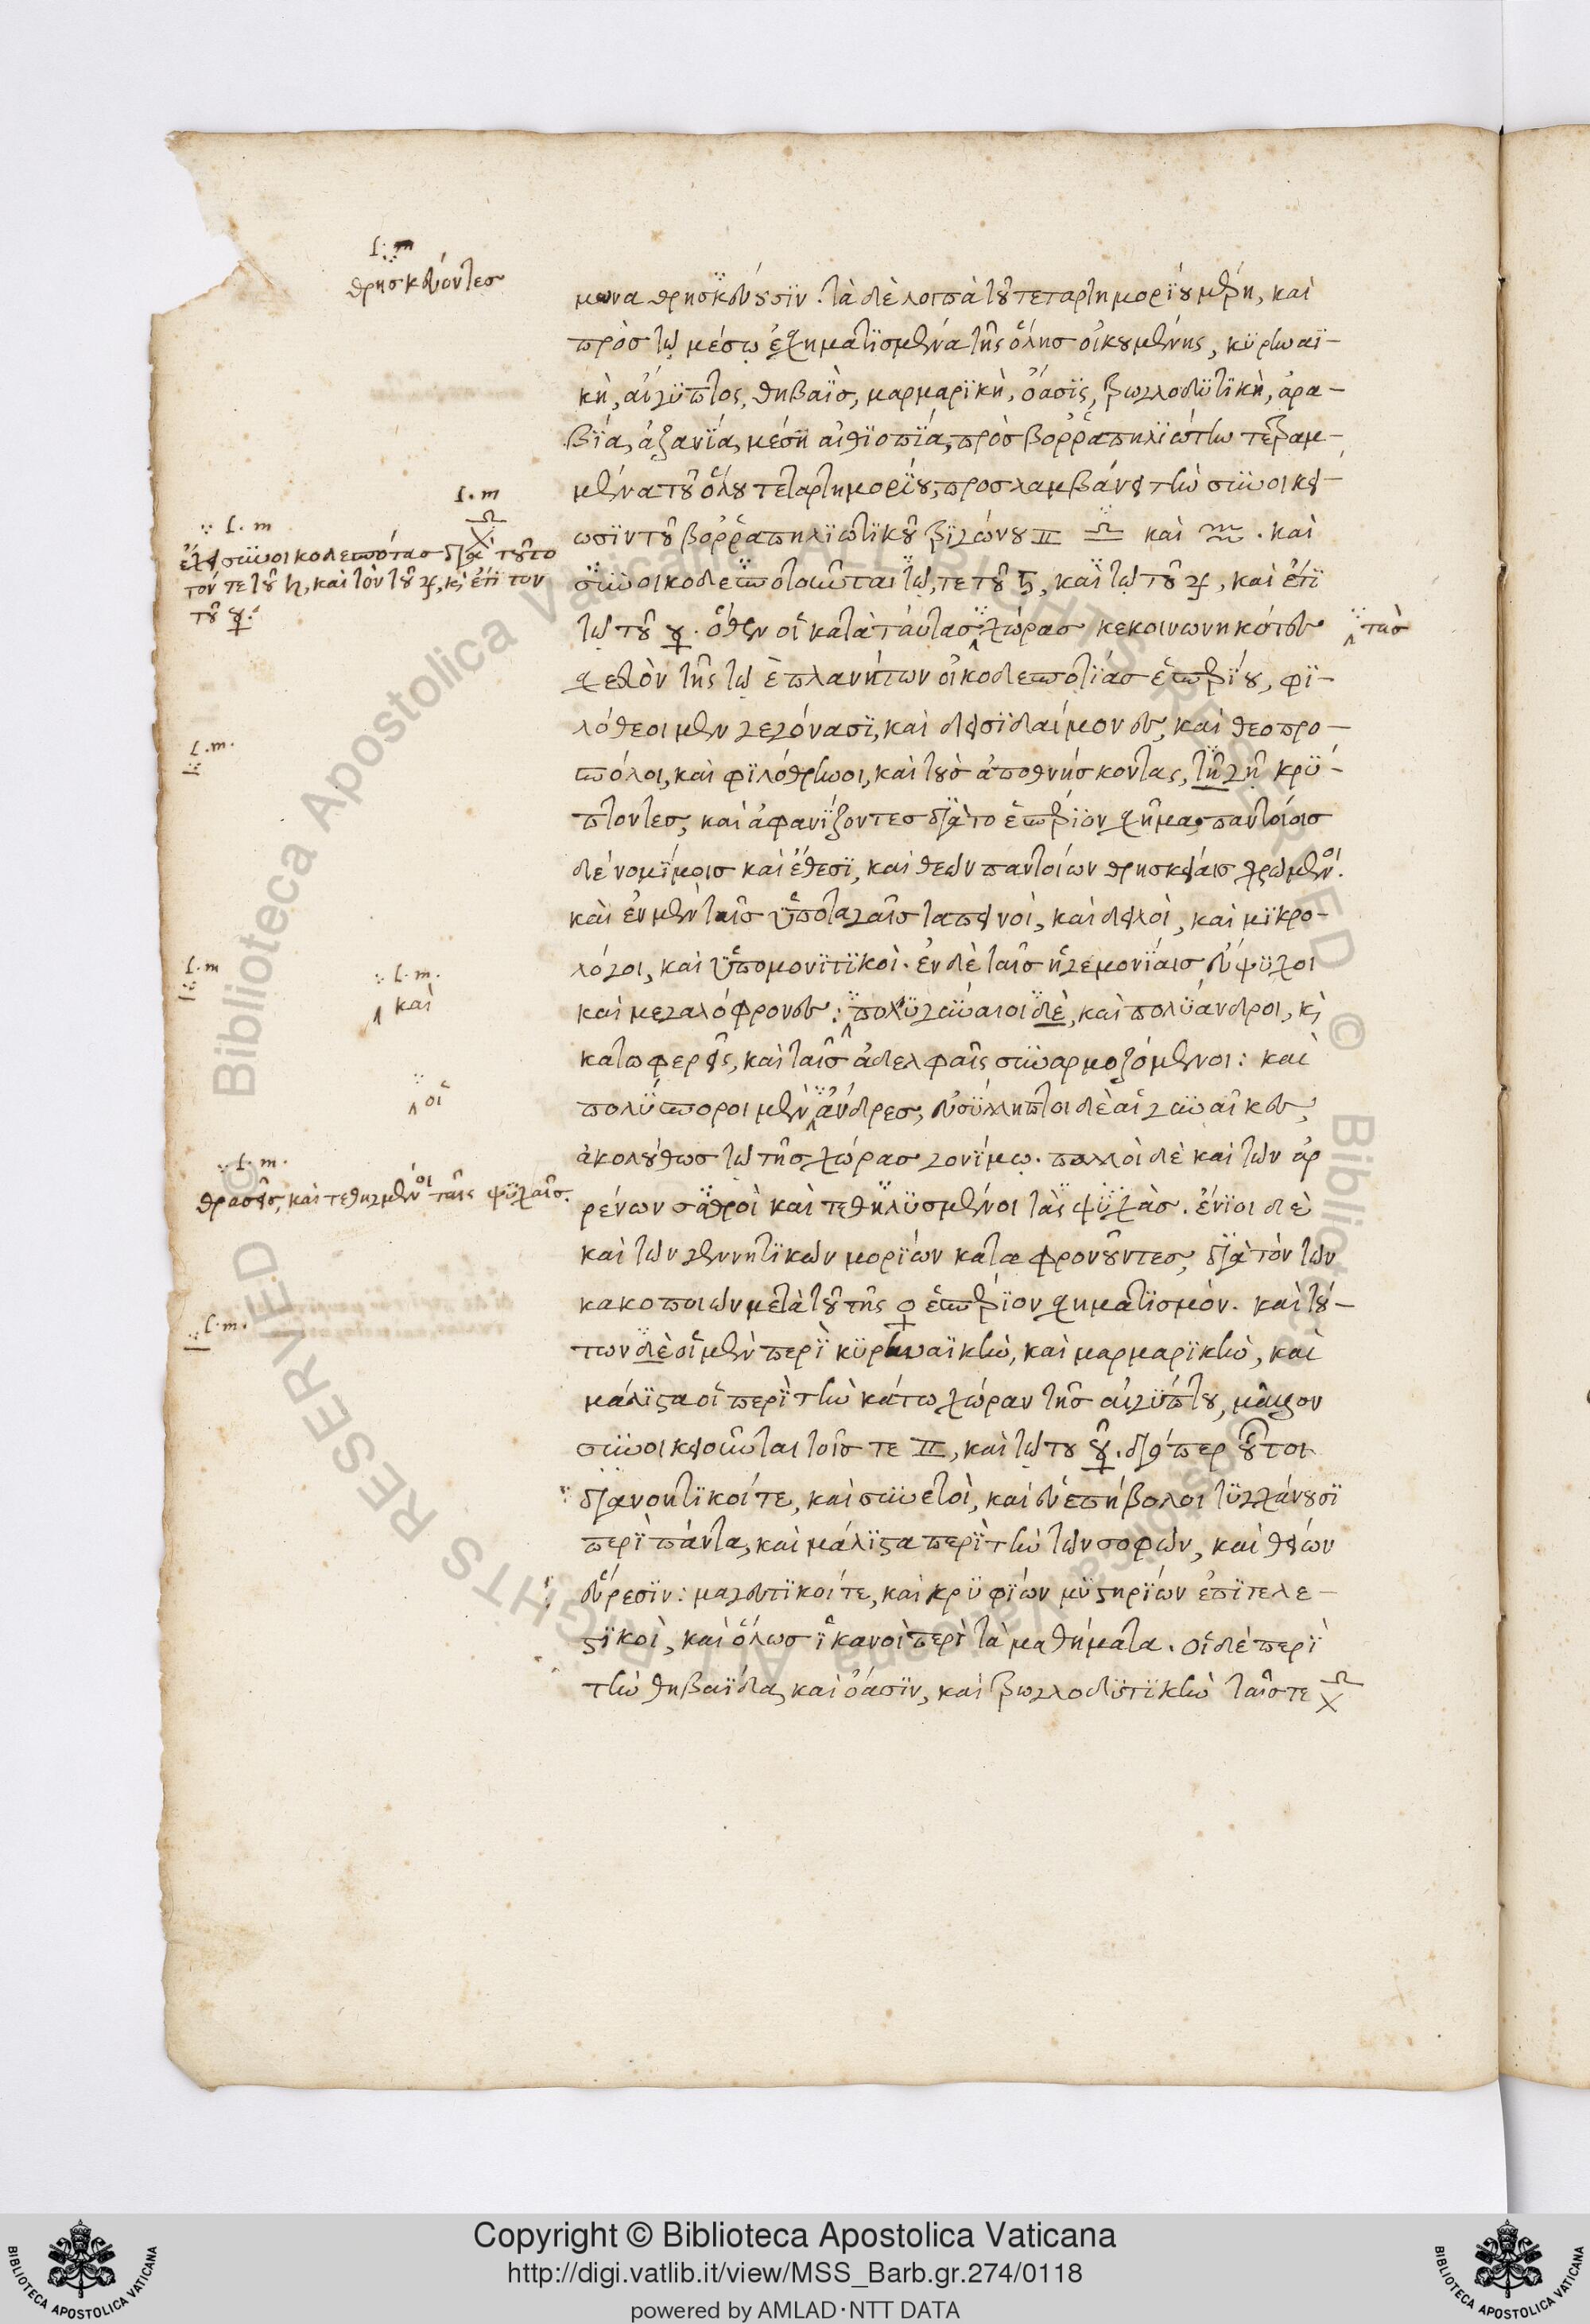 L. m
θρησκεύοντες
μονα θρησκεύουσϊν. τὰ δὲ λοιπὰ τοῦ τεταρτημορίου μέρη, καὶ
πρὸς τῷ μέσῳ ἐσχηματϊσμένα τῆς ὅλης οἰκουμένης, κϋρηναϊ-
κὴ, αἴγϋπτος, θηβαῒς, μαρμαρϊκὴ, ὄασϊς, τρωγλοδϋτϊκὴ, ἀρα-
βΐα, ἀζανΐα, μέση αἰθϊοπΐα, πρὸς βορρᾶπηλϊώτην τετραμ-
μένα τοῦ ὅλου τεταρτημορΐου, προσλαμβάνει τὴν συνοικεί-
ωσϊν τοῦ βορραπηλϊωτϊκοῦ τρϊγώνου ♊ ♎ καὶ ♒. καὶ
συνοικοδεσποτοῦνται τῷ, τε τοῦ ♄, καὶ τῷ τοῦ ♃, καὶ ἔτϊ
τῷ τοῦ ☿. ὅθεν οἱ κατὰ ταύτας χώρας κεκοινωνηκότες
σχεδὸν τῆς τῶν ε πλανήτων οἰκοδεσποτϊάς ἑσπερΐου, φϊ-
λόθεοι μὲν γεγόνασϊ, καὶ δεισϊδαίμονες, καὶ θεοπρό-
σπόλοι, καὶ φϊλόθρηνοι, καὶ τοὺς ἀποθνήσκοντας, τῇ γῇ κρύ-
πτοντες, καὶ ἀφανΐζοντες δϊὰ τὸ ἑσπέρϊον σχῆμα, παντοίοις
δὲ νομΐμοις καὶ ἔθεσϊ, καὶ θεῶν παντοίων θρησκείαις χρώμενοι.
καὶ ἐν μὲν ταῖς ὑποταγαῖς ταπεινοὶ, καὶ δειλοὶ, καὶ μϊκρο-
λόγοι, καὶ ὑπομονϊτϊκοὶ. ἐν δὲ ταῖς ἡγεμονΐαις εὔψϋχοι
καὶ μεγαλόφρονες: πολϋγύναιοι δὲ, καὶ πολύανδροι, καὶ
κατωφερεῖς, καὶ ταῖς ἀδελφαῖς συναρμοζόμενοι: καὶ
πολύσποροι μὲν ἄνδρες, εὐσύλληπτοι δὲ αἱ γυναῖκες,
ἀκολούθως τῷ τῆς χώρας γονίμῳ. πολλοὶ δὲ καὶ τῶν ἀρ
ρένων σαθροὶ καὶ τεθηλϋσμένοι τὰς ψυχὰς. ἔνϊοι δὲ
καὶ τῶν γεννητϊκῶν μορΐων καταφρονοῦντες, δϊὰ τὸν τῶν
κακοποιῶν μετὰ τοῦ τῆς ♀ ἑσπέρϊον σχηματϊσμόν. καὶ τού-
των δὲ οἱ μὲν περὶ κϋρηναϊκὴν, καὶ μαρμαρϊκὴν, καὶ
μάλϊστα οἱ περὶ τὴν κάτω χώραν τῆς αἰγύπτου, μᾶλλον
συνοικειοῦνται τοῖς τε ♊, καὶ τῷ του ☿. δϊόπερ οὗτοι
δϊανοητϊκοί τε, καὶ συνετοὶ, καὶ εὐεπήβολοι τϋγχάνουσϊ
περὶ πάντα, καὶ μάλϊστα περὶ τὴν τῶν σοφῶν, καὶ θείων
εὕρεσϊν: μαγευτϊκοί τε, καὶ κρϋφΐων μϋστηρΐων ἐπϊτελε-
στϊκοὶ, καὶ ὅλως ἱκανοὶ περὶ τὰ μαθήματα. οἱ δὲ περὶ
τὴν θηβαΐδα, καὶ ὄασϊν, καὶ τρωγλοδϋτϊκὴν ταῖς τε
L. m
L. m
ἔχει συνοικοδεσπότας δϊὰ τοῦτο
τόν τε τοῦ ♄, καὶ τὸν τοῦ ♃, καὶ ἔτϊ τὸν
τοῦ ☿.
τὰς
L. m.
L. m
L. m.
καὶ
οἱ
L. m.
θρασεῖς, καὶ τεθηγμένοι ταῖς ψυχαῖς.
L. m.
Copyright © Biblioteca Apostolica Vaticana
http://digi.vatlib.it/view/MSS_Barb.gr.274/0118
powered by AMLAD·NTT DATA
BIBLIOTECA APOSTOLICA VATICANA
BIBLIOTECA APOSTOLICA VATICANA